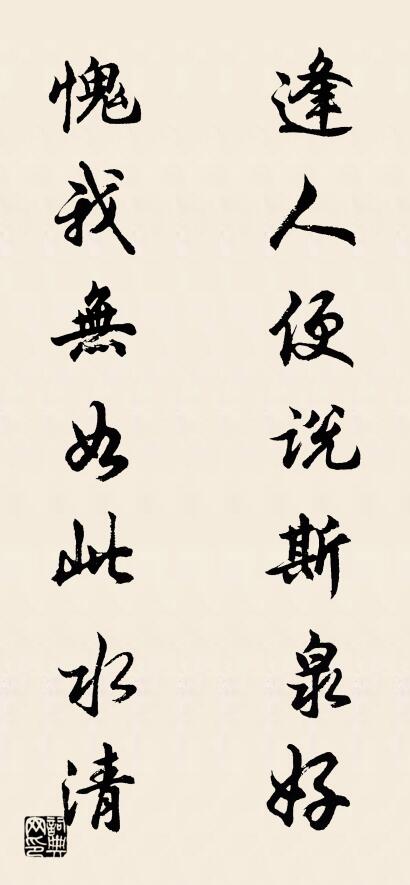 逢人便说斯泉好
愧我無如此水清
詞典网印